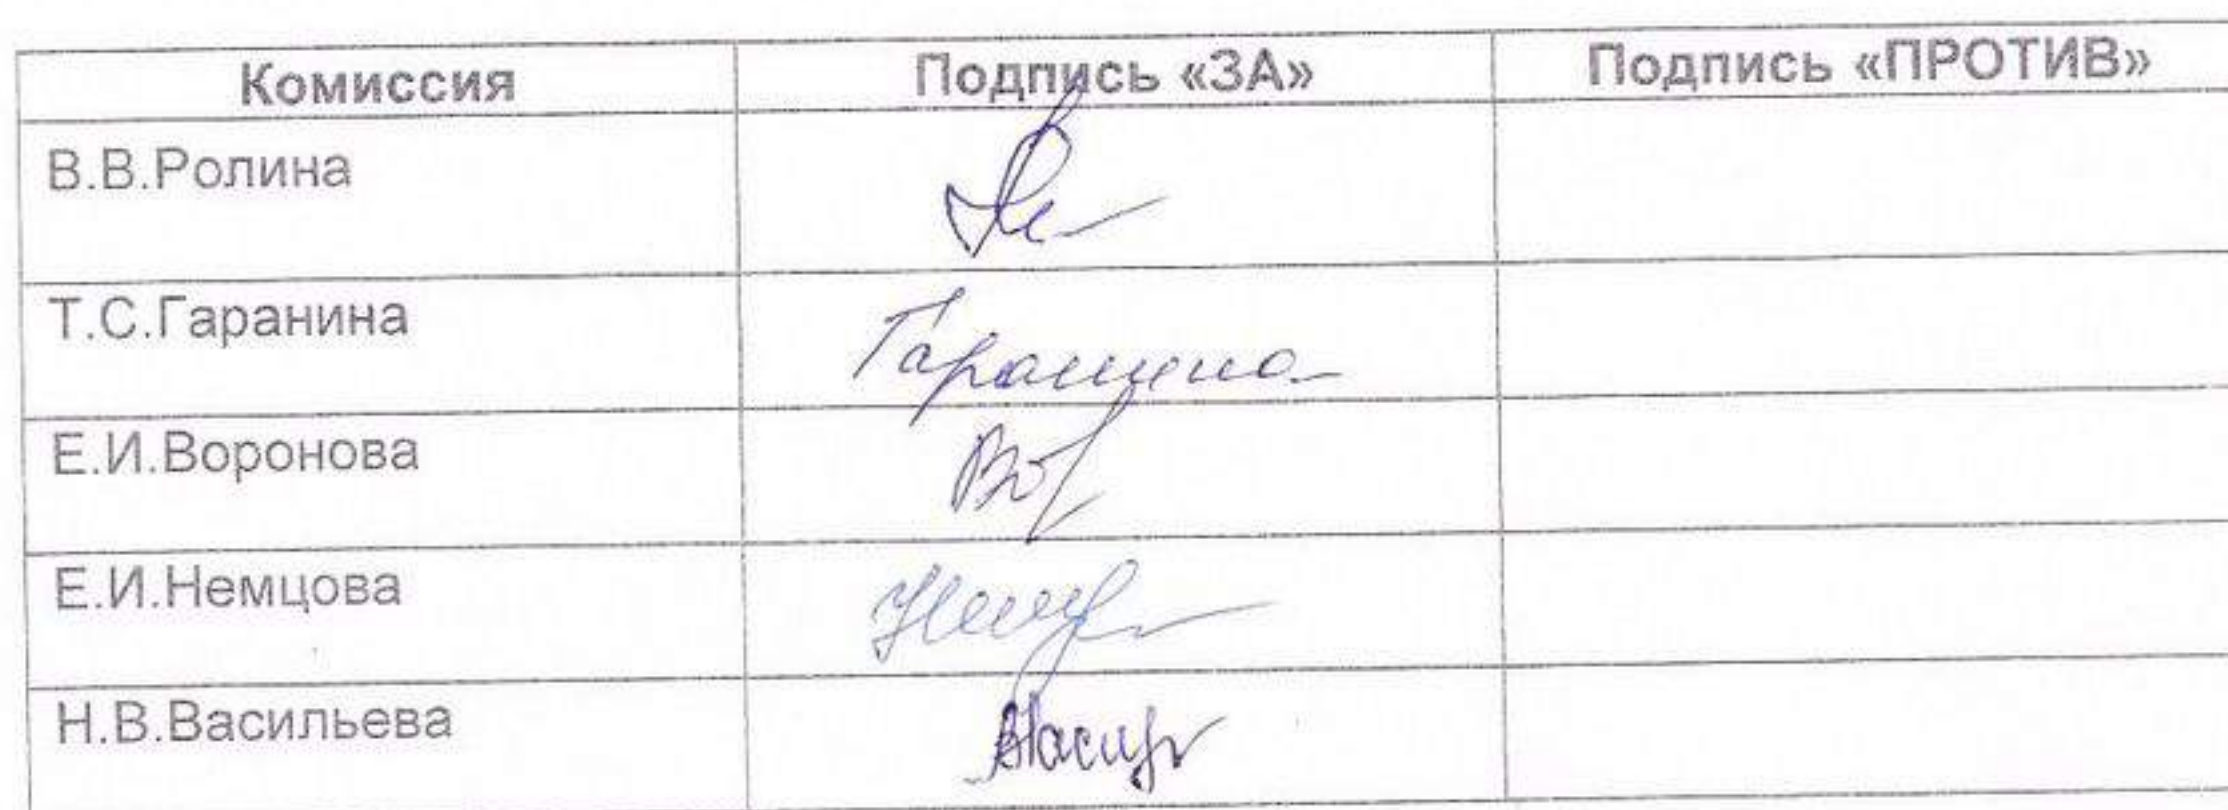 Комиссия Подпись «ЗА» Подпись «ПРОТИВ»
В.В.Ролина
Т.С.Гаранина Гаранина
Е.И.Воронова Вор
Е.И.Немцова
Н.В.Васильева